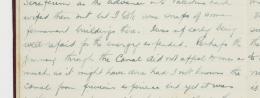 as the advance into Palestine and
wiped them out but I felt was scraps of some
permanent buildings there. Signs of early being
well repaid for the energy expended. Perhaps the
journey through the Canal did not appeal to me as
much as it might have done had I not known the
Canal from previous experience and yet it was